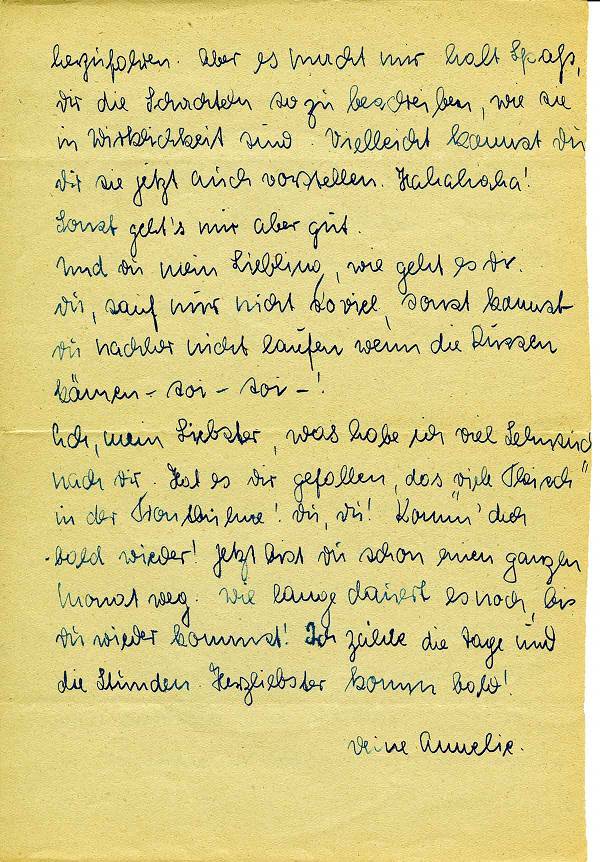 herzufahren. Aber es macht mir halt Spaß,
dir die Schachteln so zu beschreiben, wie sie
in Wirklichkeit sind. Vielleicht kannst du
dir sie jetzt auch vorstellen. Hahahaha!
Sonst geht's mir aber gut.
Und du mein Liebling, wie geht es dir.
Du, sauf nur nicht soviel, sonst kannst
du nachher nicht laufen wenn die Russen
kämen - soi - soi -!
Ach, mein Liebster, was habe ich viel Sehnsucht
nach dir. Hat es dir gefallen, das viele "Fleisch"
in der! Du, du! Komm' doch
bald wieder! Jetzt bist du schon einen ganzen
Monat weg. Wie lange dauert es noch, bis
du wieder kommst! Ich zähle die Tage und
die Stunden. Herzliebster komm bald!
Deine Annelie.